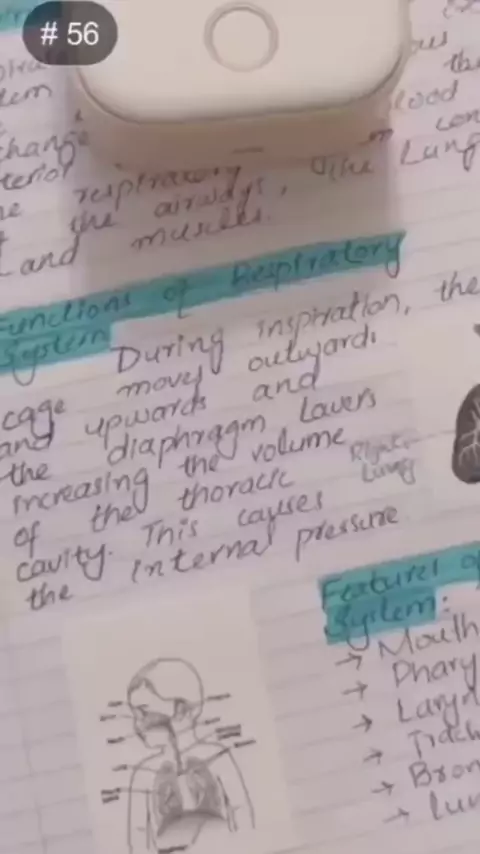 # 56
the
tem
blood
change
con
respiratory
The Lung
the airways,
and muscles.
Functions of Respiratory
System
During inspiration, the
cage moves outward
and upwards and
the diaphragm lowers
increasing the volume
of the thoracic
cavity. This causes
the internal pressure
Right
Lung
Features of
System:
→ Mouth
→ Phary
→ Laryn
→ Trach
→ Bron
→ Lun